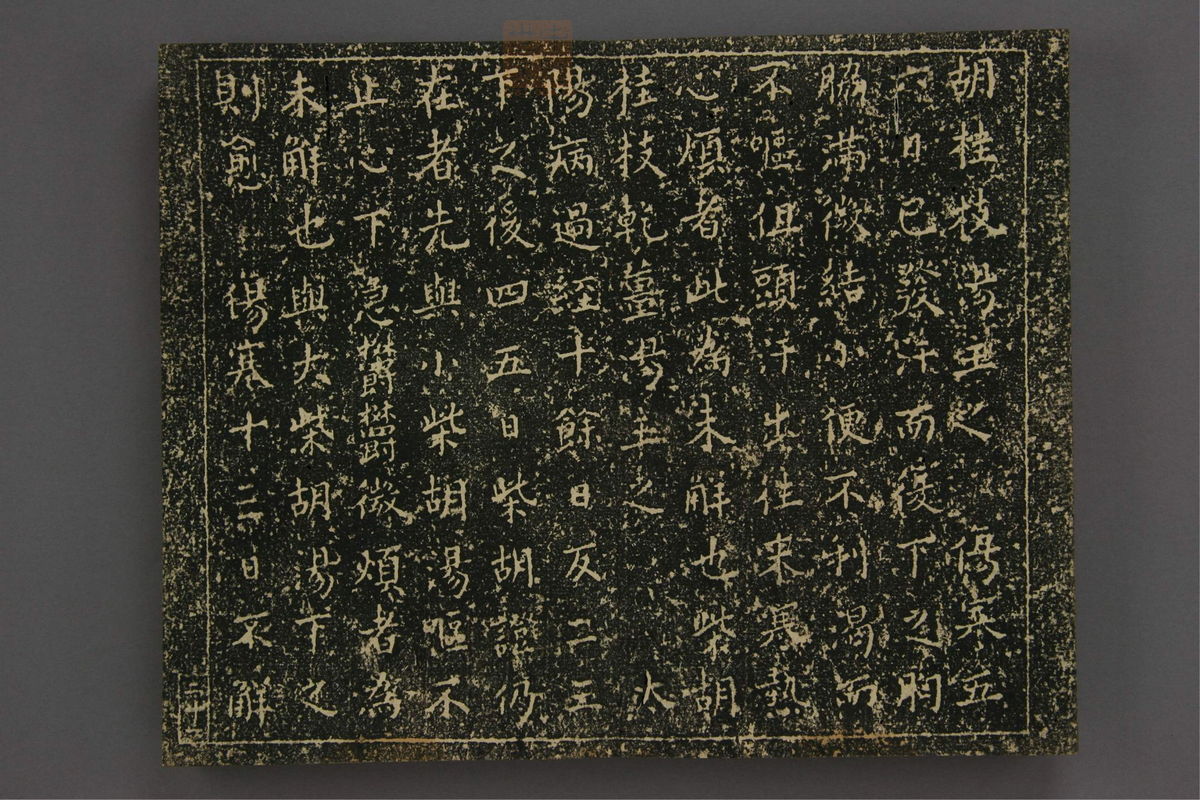 胡桂枝湯主之傷寒五
六日已發汗而復下之胷
脇滿微結小便不利渴而
不嘔但頭汗出往来寒熱
心煩者此為未解也柴胡
桂枝乾薑湯主之　太
陽病過經十餘日反二三
下之後四五日柴胡證仍
在者先與小柴胡湯嘔不
止心下急鬱鬱微煩者為
未解也與大柴胡湯下之
則愈　傷寒十三日不解
三十